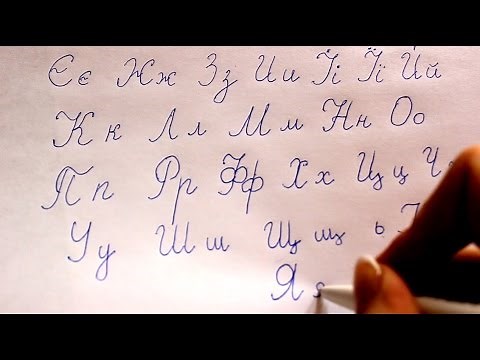 Єє Жж Зз Ии Іі Її Йй
Кк Лл Мм Нн Оо
Пп Рр Фф Хх Цц Ч
Уу Шш Щщ ь
Яя